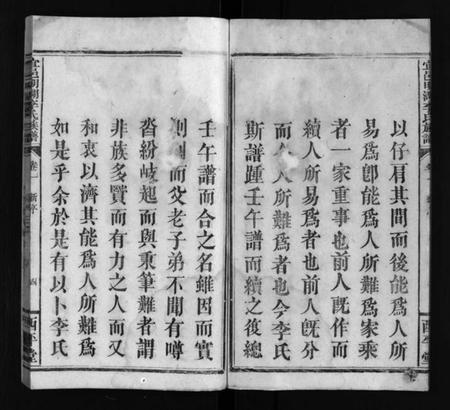 以仔肩其間而後能爲人所
易爲卽能爲人所難爲家乘
者一家重事也前人旣作而
續人所易爲者也前人旣分
而合人所難爲者也今李氏
斯譜踵壬午譜而續之復總
壬午譜而合之名雖因而實
創因而父老子弟不聞有噂
沓紛岐起而與秉筆難者謂
非族多賢而有力之人而又
和衷以濟其能爲人所難爲
如是乎余於是有以卜李氏
宜邑明湖李氏族譜
卷一
新序
四
西平堂